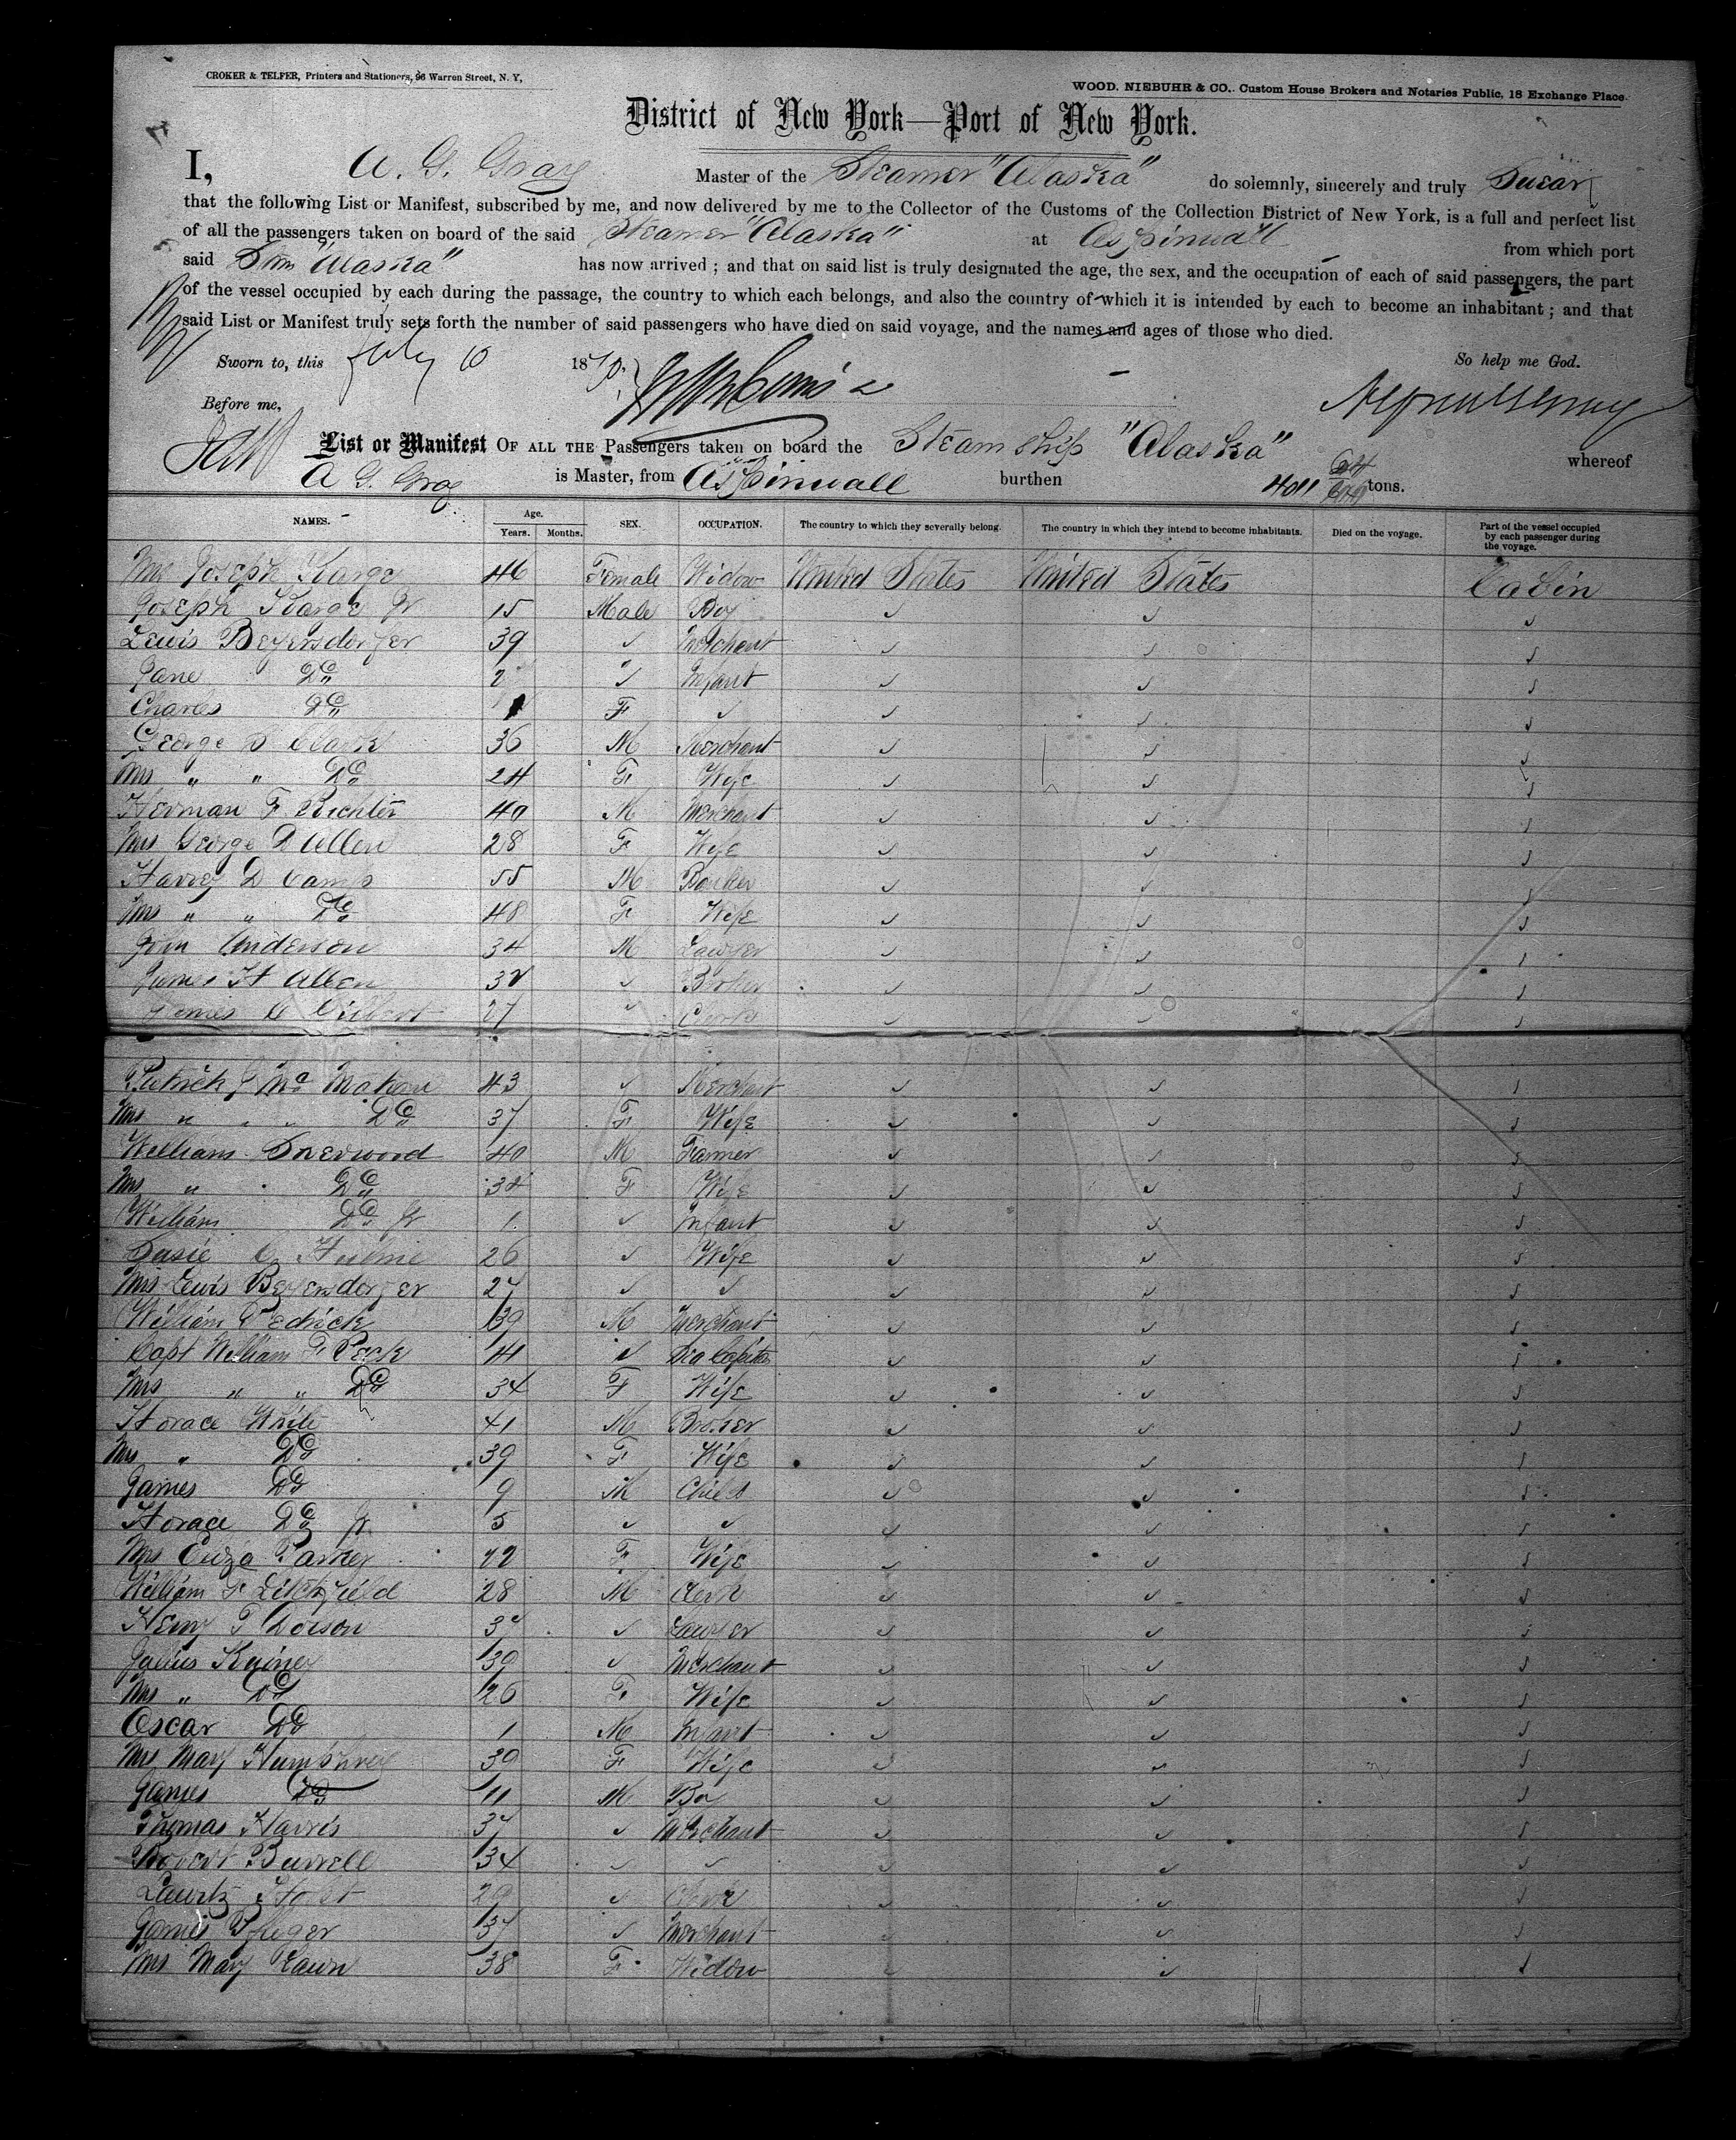 CROKER & TELFER, Printers and Stationers, 96 Warren Street, N. Y.
WOOD, NIEBUHR & CO., Custom House Brokers and Notaries Public, 18 Exchange Place.
District of New York—Port of New York.
I, A. G. Gray Master of the Steamer "Alaska" do solemnly, sincerely and truly Swear
that the following List or Manifest, subscribed by me, and now delivered by me to the Collector of the Customs of the Collection District of New York, is a full and perfect list
of all the passengers taken on board of the said Steamer "Alaska" at Aspinwall from which port
said Stm "Alaska" has now arrived ; and that on said list is truly designated the age, the sex, and the occupation of each of said passengers, the part
of the vessel occupied by each during the passage, the country to which each belongs, and also the country of which it is intended by each to become an inhabitant ; and that
said List or Manifest truly sets forth the number of said passengers who have died on said voyage, and the names and ages of those who died.
Sworn to, this July 10 1870. So help me God.
Before me,
List or Manifest OF ALL THE Passengers taken on board the Steam Ship "Alaska" whereof
A G. Gray is Master, from Aspinwall burthen 4011 tons.
NAMES. Age. Years. Months. SEX. OCCUPATION. The country to which they severally belong. The country in which they intend to become inhabitants. Died on the voyage. Part of the vessel occupied by each passenger during the voyage.
Mrs Joseph Karge 46 Female Widow United States United States Cabin
Joseph Karge Jr 15 Male Boy
Lewis Beyersdorfer 39 Merchant
Jane Do 2 Infant
Charles Do F
George D Clark 36 M Merchant
Mrs " " Do 24 F Wife
Herman F Richter 40 M Merchant
Mrs George D Allen 28 F Wife
Harvey D Camp 55 M Banker
Mrs " " Do 48 F Wife
John Anderson 34 M Lawyer
James H Allen Broker
James Gilbert 27 Clerk
Patrick J Mc Mahon 43 Merchant
Mrs " " " Do 37 F Wife
William Sherwood 40 M Farmer
Mrs " Do F Wife
William Do Jr 1 Infant
Susie 26 Wife
Mrs Lewis Beyersdorfer 27
William Pedrick 39 M Merchant
Capt William F Peck 41 Sea Captain
Mrs " " Do 34 F Wife
Horace White 41 M Broker
Mrs " Do 39 F Wife
James Do 9 M Child
Horace Do Jr 5
Mrs Eliza Parker F Wife
William F Litchfield 28 M Clerk
Henry T Lawyer
Julius 39 Merchant
Mrs " Do 26 F Wife
Oscar Do 1 M Infant
Mrs Mary Humphrey 39 F Wife
James Do 11 M Boy
Thomas Harris 37 Merchant
Robert Burrell 34
Lauritz Holst 29 Clerk
James Pfluger 37 Merchant
Mrs Mary Lawn 38 F Widow